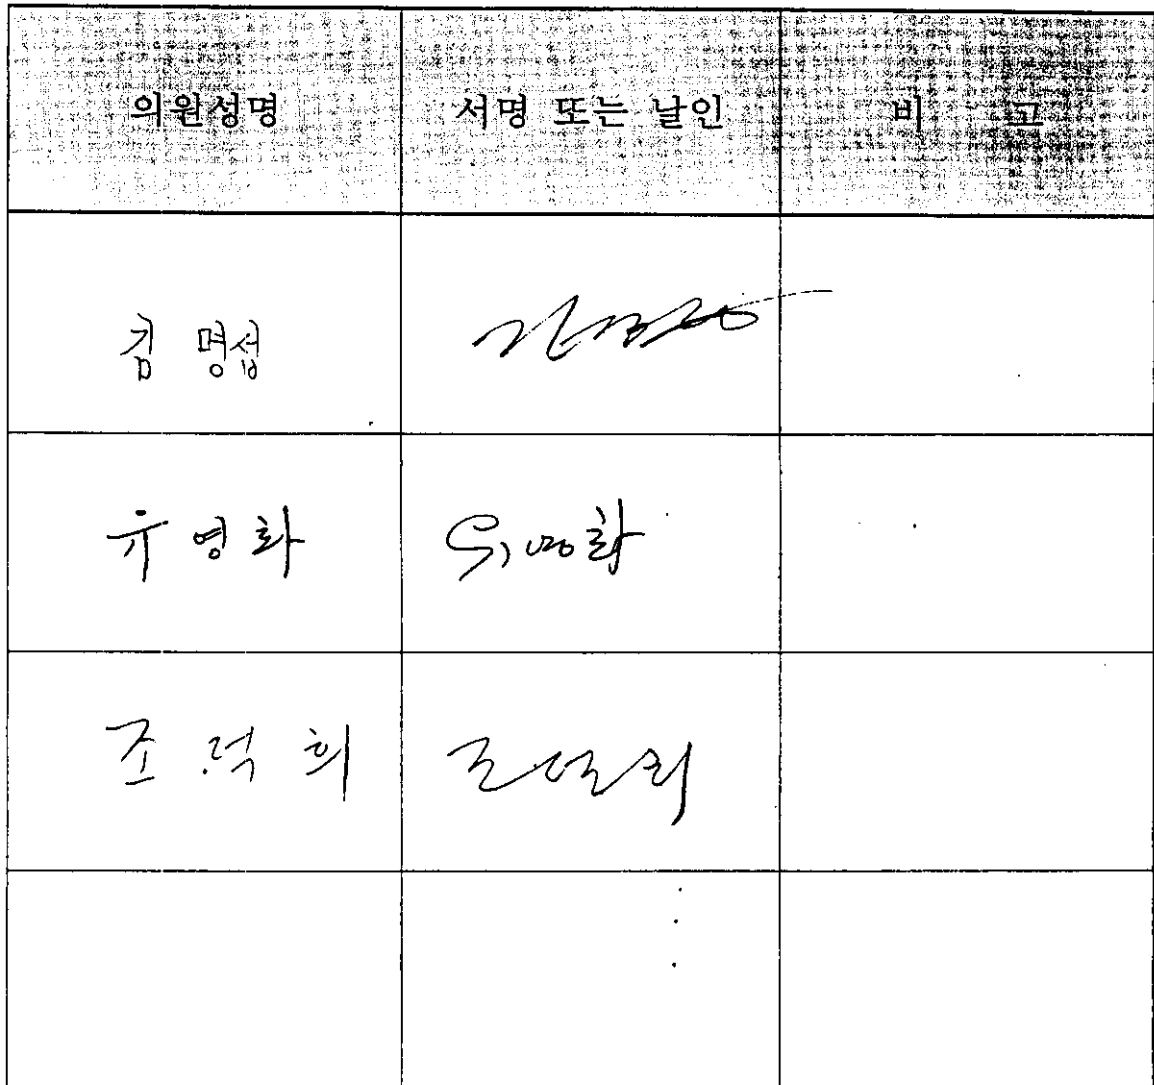 의원성명 서명 또는 날인 비 고
김 명섭
유 영 화 유영화
조 덕 희 조덕희